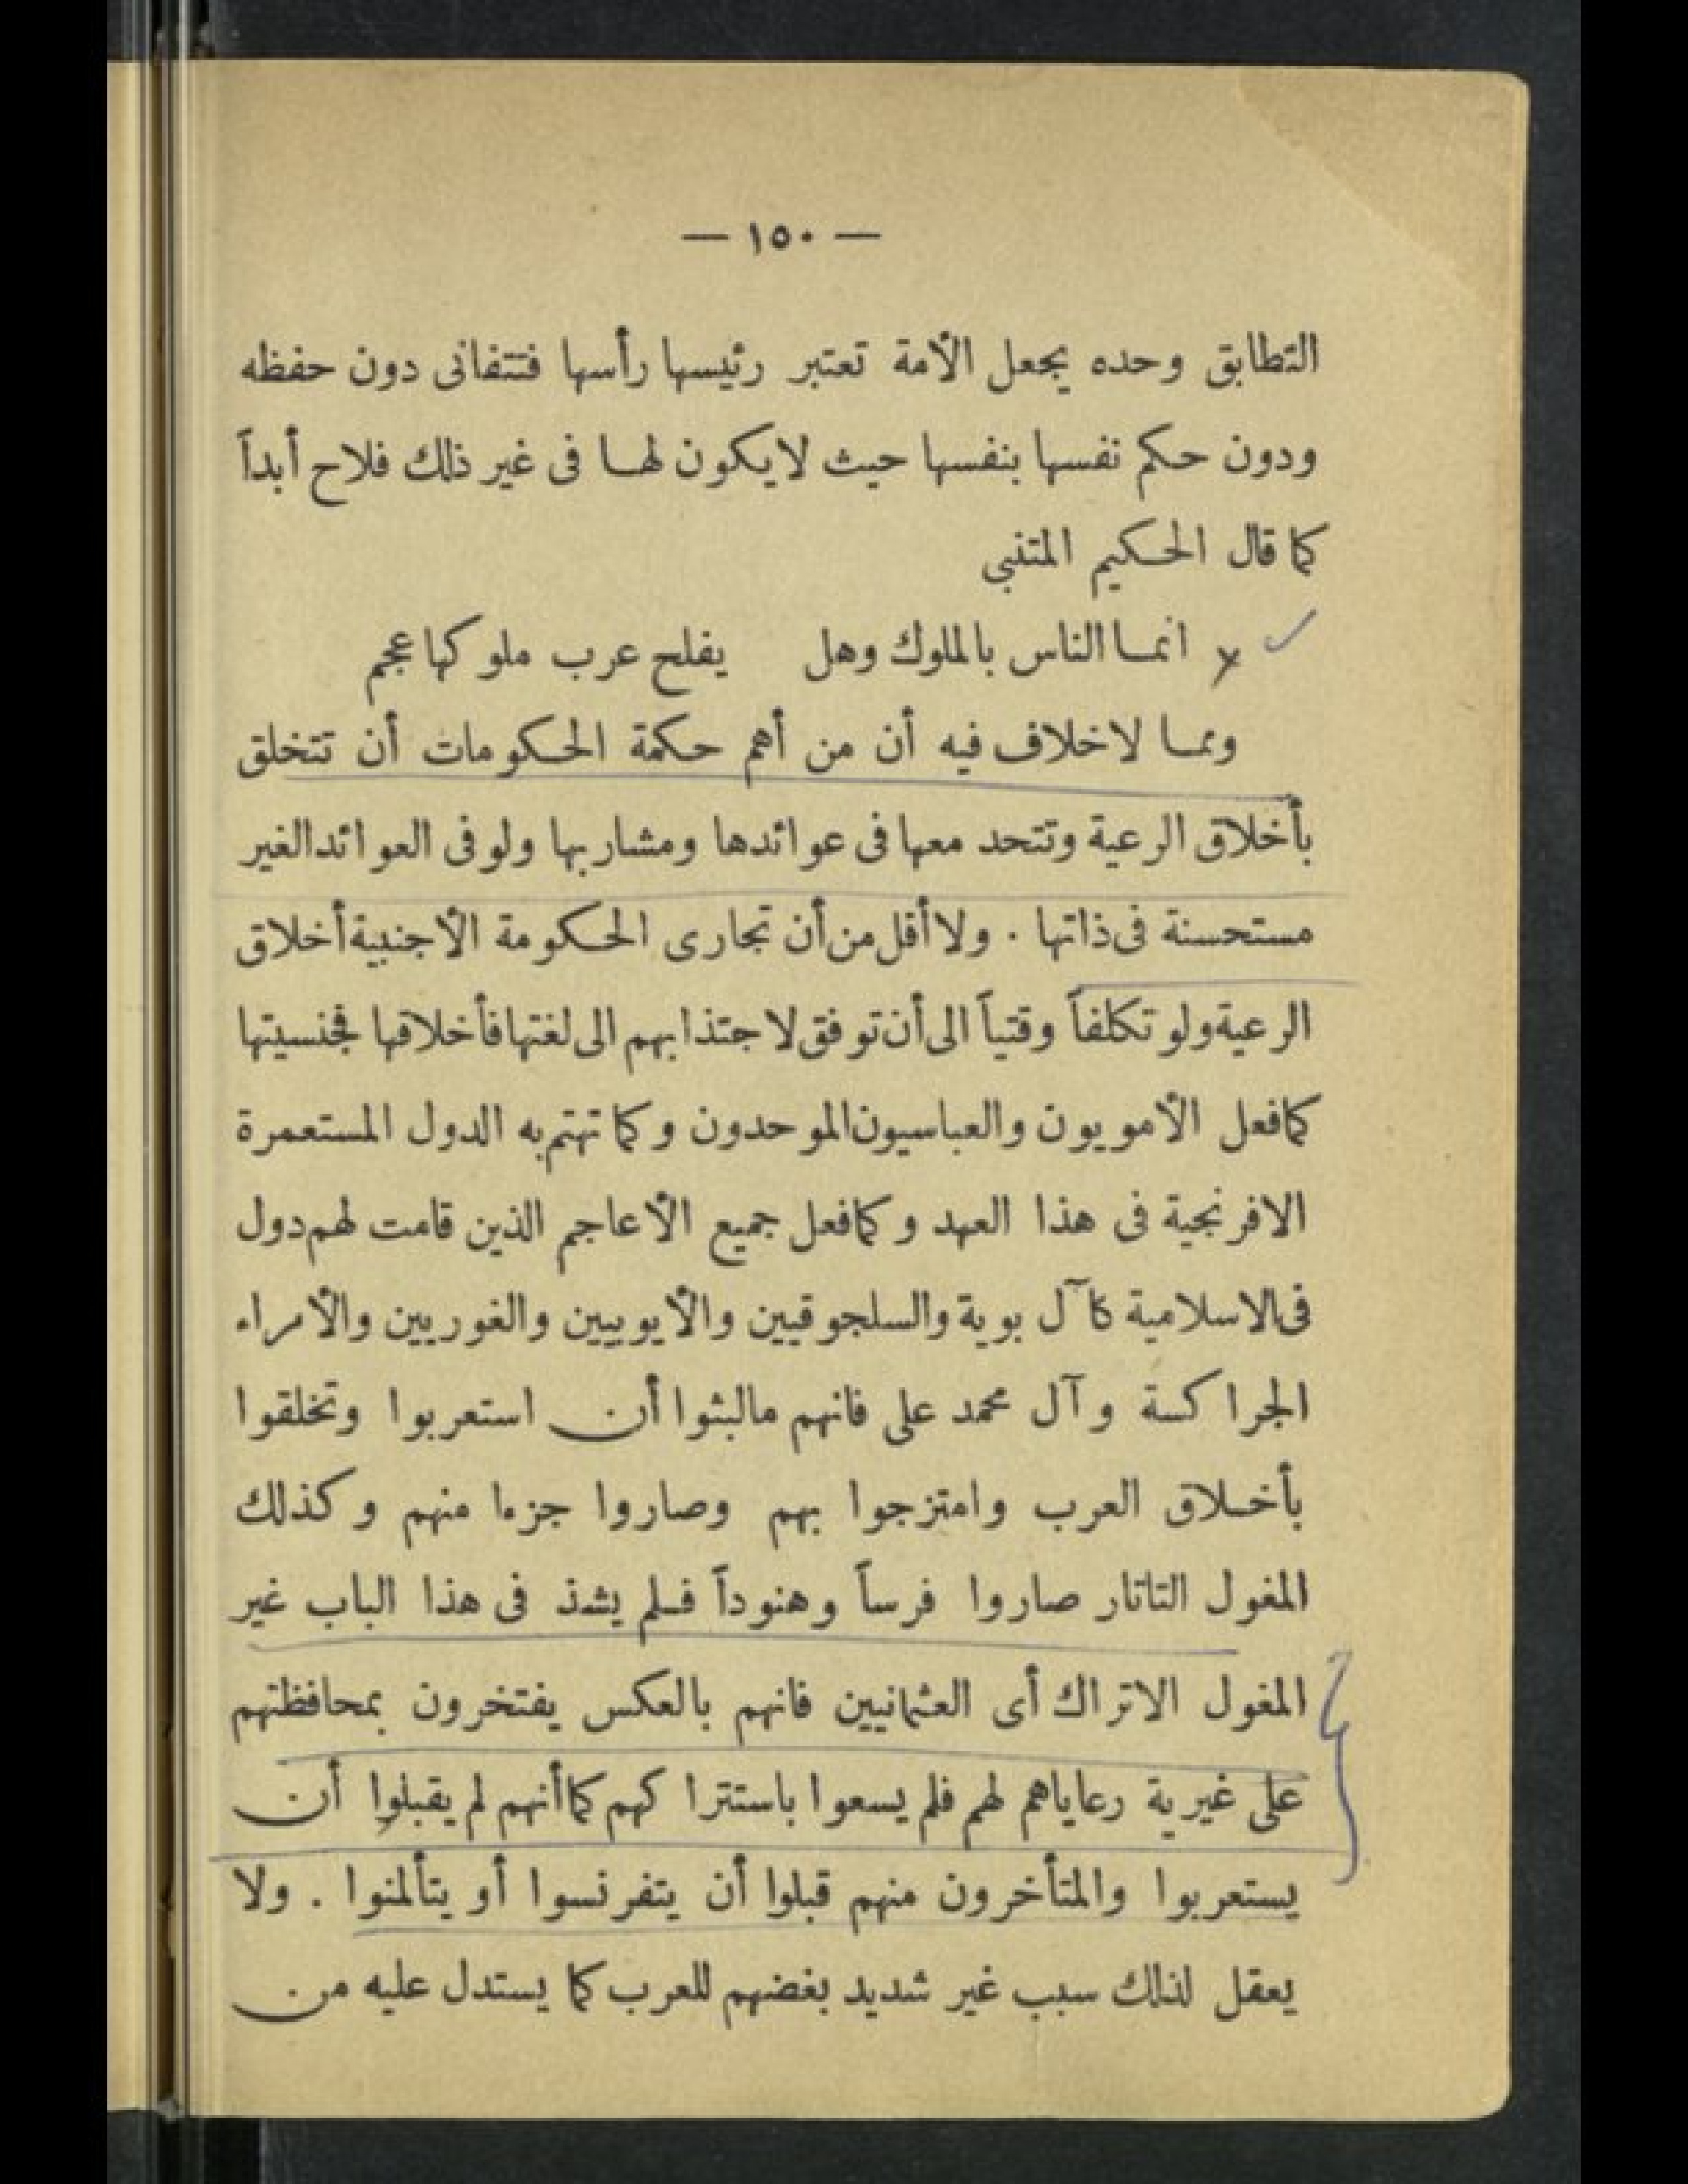 — ١٥٠ —
التطابق وحده يجعل الأمة تعتبر رئيسها رأسها فتتفانى دون حفظه
ودون حكم نفسها بنفسها حيث لايكون لها فى غير ذلك فلاح أبداً
كما قال الحكيم المتنبى
انما الناس بالملوك وهل يفلح عرب ملوكها عجم
ومما لاخلاف فيه أن من أهم حكمة الحكومات أن تتخلق
بأخلاق الرعية وتتحد معها فى عوائدها ومشاربها ولو فى العوائد الغير
مستحسنة فى ذاتها . ولا أقل من أن تجارى الحكومة الأجنبية أخلاق
الرعية ولو تكلفاً وقتياً الى أن توفق لاجتذابهم الى لغتها فأخلاقها فجنسيتها
كما فعل الأمويون والعباسيون الموحدون وكما تهتم به الدول المستعمرة
الافرنجية فى هذا العهد وكما فعل جميع الأعاجم الذين قامت لهم دول
فى الاسلامية كآل بوية والسلجوقيين والأيوبيين والغوريين والأمراء
الجراكسة وآل محمد على فانهم مالبثوا أن استعربوا وتخلقوا
بأخلاق العرب وامتزجوا بهم وصاروا جزءا منهم وكذلك
المغول التاتار صاروا فرساً وهنوداً فلم يشذ فى هذا الباب غير
المغول الاتراك أى العثمانيين فانهم بالعكس يفتخرون بمحافظتهم
على غيرية رعاياهم لهم فلم يسعوا باستتراكهم كما أنهم لم يقبلوا أن
يستعربوا والمتأخرون منهم قبلوا أن يتفرنسوا أو يتألمنوا . ولا
يعقل لذلك سبب غير شديد بغضهم للعرب كما يستدل عليه من